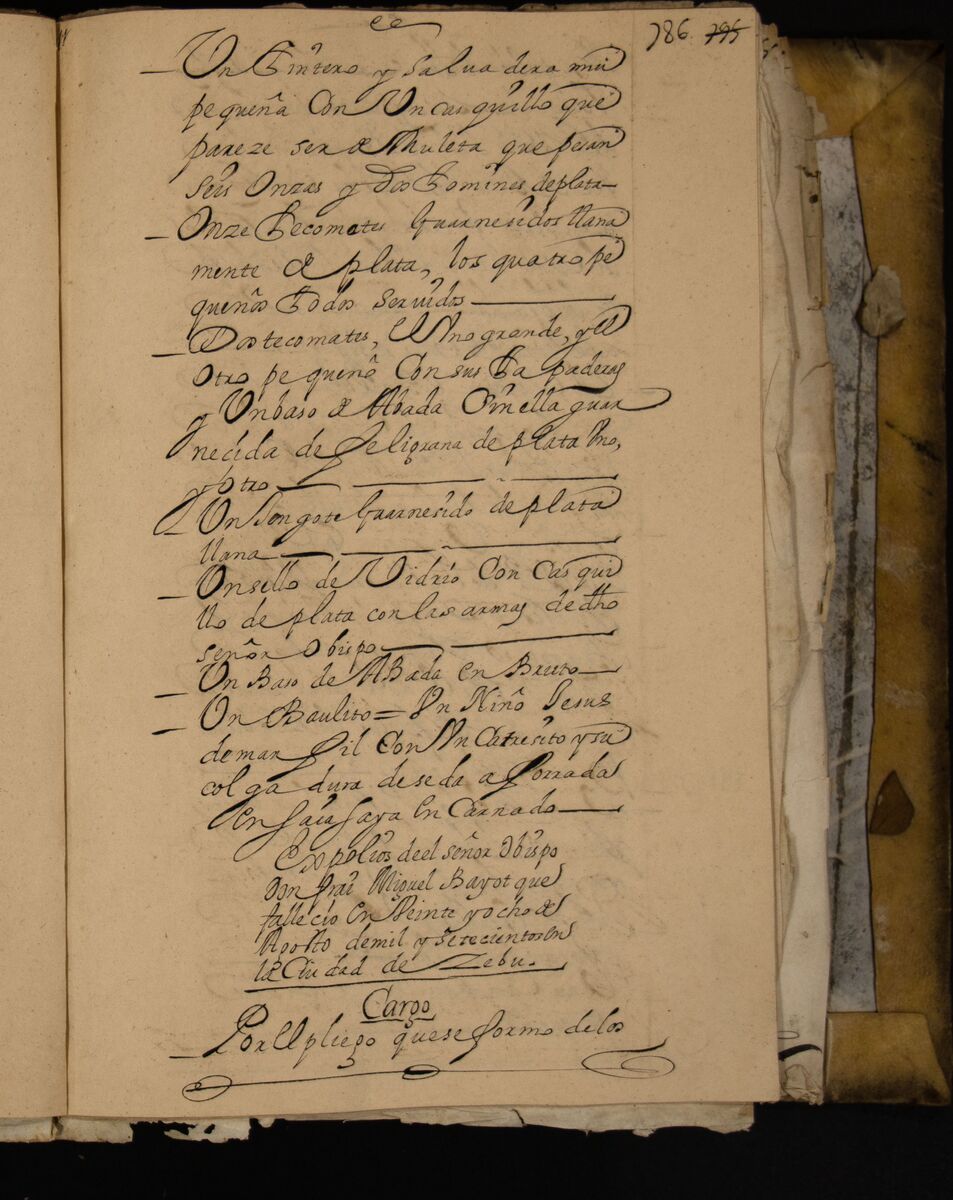 786 795
Un Tintero y saluadera mui
pequeña Con Un casquillo que
pareze ser de Muleta que pesan
seis Onzas y dos Tomines de plata
Onze Tecomates Guarnesidos llana
mente de plata, los quatro pe
queños Todos seruidos
Dos tecomates, el Uno grande, y el
Otro pequeño Con sus Tapaderas
y Un baso de Abada Con ella guar
necida de feligrana de plata Uno,
y otro
Un Guarnesido de plata
llana
Un sello de Vidrio Con Casqui
llo de plata con las armas de dho
señor Obispo
Un Baso de ABada en Bruto
Un Baulito = Un Niño Jesus
de marfil Con Un Catresito y su
colgadura de seda aforrada
en saia saya Encarnado
Expolios deel señor Obispo
Don frai Miguel Bayot que
fallecio en Veinte y ocho de
Agosto de mil y setecientos en
la Ciudad de Zebu.
Cargo
Por el pliego que se formo de los